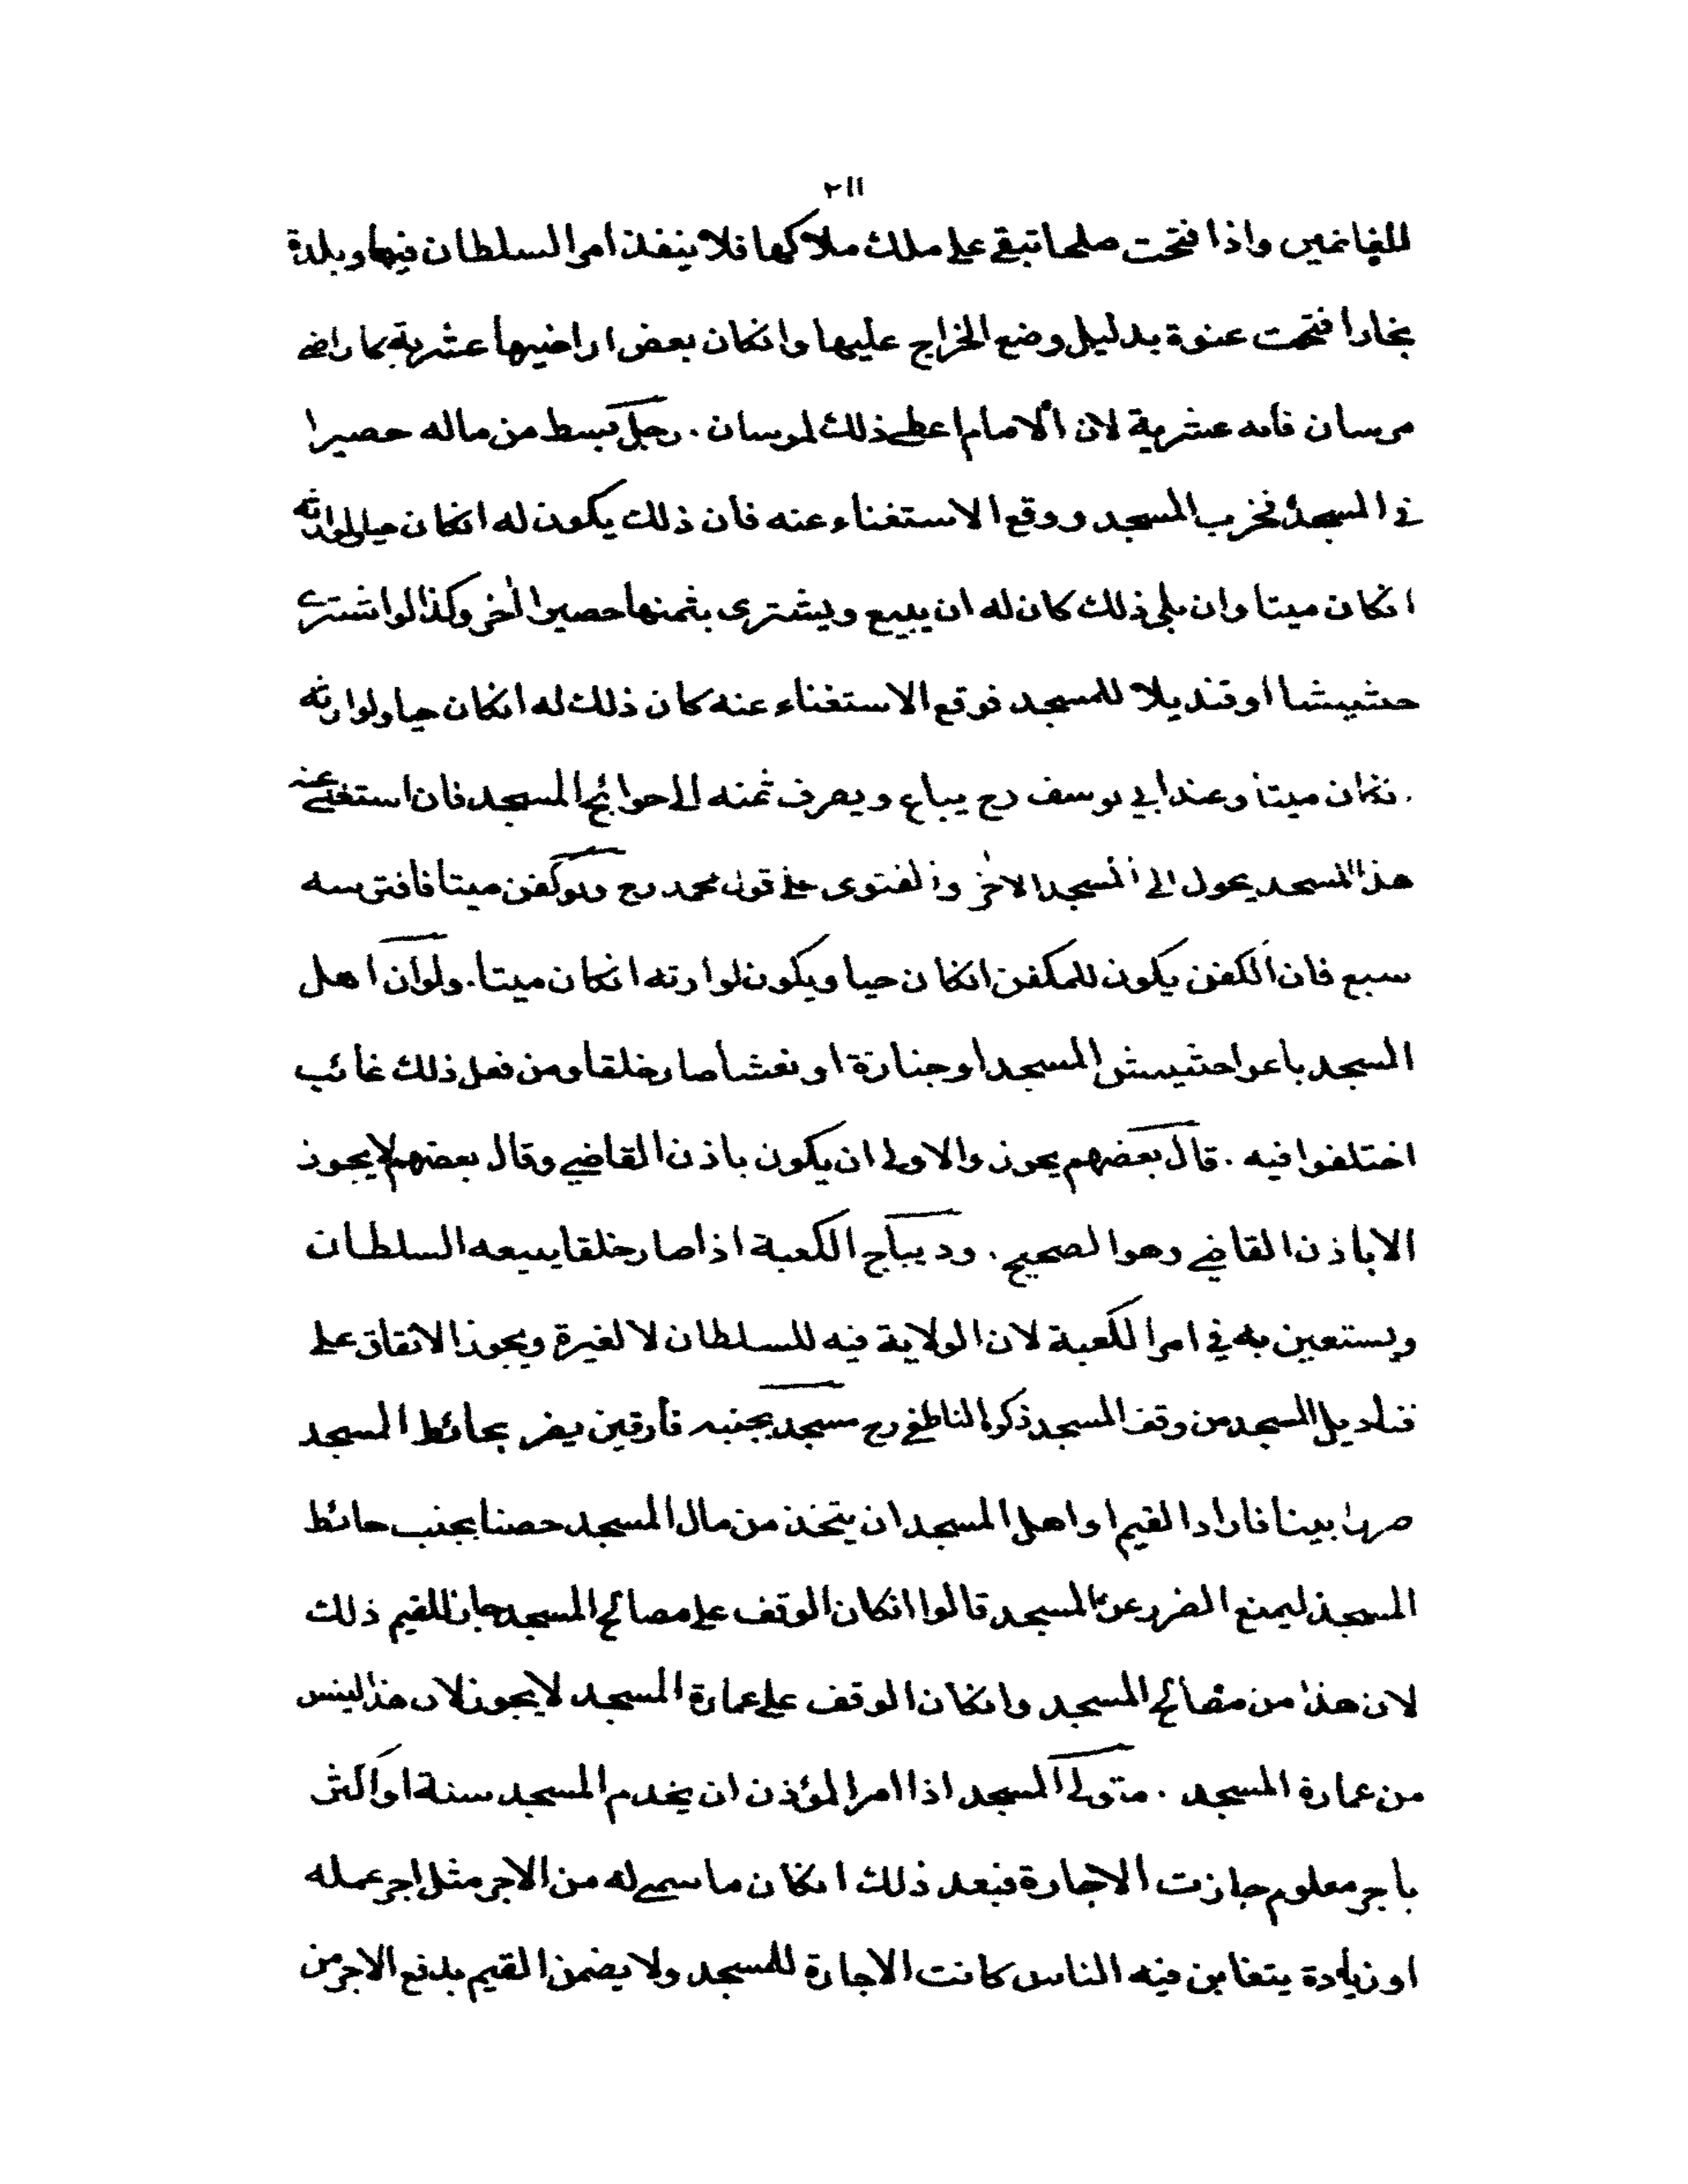 ٢١١
للغانمين واذا فتحت صلحا تبقى على ملك ملاكها فلا ينفذ امر السلطان فيها وبلدة
بخارا فتحت عنوة بدليل وضع الخراج عليها وانكان بعض اراضيها عشرية كاراضى
مرسان فانه عشرية لان الامام اعطى ذلك لمرسان . رجل بسط من ماله حصيرا
فى المسجد فخرب المسجد ووقع الاستغناء عنه فان ذلك يكون له انكان حيا ولوارثه
انكان ميتا وان بلى ذلك كان له ان يبيع ويشترى بثمنها حصيرا اخر وكذا لو اشترى
حشيشا او قنديلا للمسجد فوقع الاستغناء عنه كان ذلك له انكان حيا ولوارثه
انكان ميتا وعند ابي يوسف رح يباع ويصرف ثمنه الى حوائج المسجد فان استغنى عنه
هذا المسجد يحول الى المسجد الاخر والفتوى على قول محمد رح ولو كفن ميتا فافترسه
سبع فان الكفن يكون للمكفن انكان حيا ويكون لوارثه انكان ميتا . ولو ان اهل
المسجد باعوا حشيش المسجد او جنازة او نعشا صار خلقا ومن فعل ذلك غائب
اختلفوا فيه . قال بعضهم يجوز والاولى ان يكون باذن القاضي وقال بعضهم لا يجوز
الا باذن القاضي وهو الصحيح . وديباج الكعبة اذا صار خلقا يبيعه السلطان
ويستعين به في امر الكعبة لان الولاية فيه للسلطان لا لغيرة ويجوز الانفاق على
قناديل المسجد من وقف المسجد ذكره الناطفي رح مسجد بجنبه فارقين يضر بحائط المسجد
ضررا بينا فاراد القيم او اهل المسجد ان يتخذ من مال المسجد حصنا بجنب حائط
المسجد ليمنع الضرر عن المسجد قالوا انكان الوقف على مصالح المسجد جاز للقيم ذلك
لان هذا من مصالح المسجد وانكان الوقف على عمارة المسجد لا يجوز لان هذا ليس
من عمارة المسجد . متولى المسجد اذا امر المؤذن ان يخدم المسجد سنة او اكثر
باجر معلوم جازت الاجارة فبعد ذلك انكان ما سمى له من الاجر مثل اجر عمله
او زيادة يتغابن فيه الناس كانت الاجارة للمسجد ولا يضمن القيم بدفع الاجر من